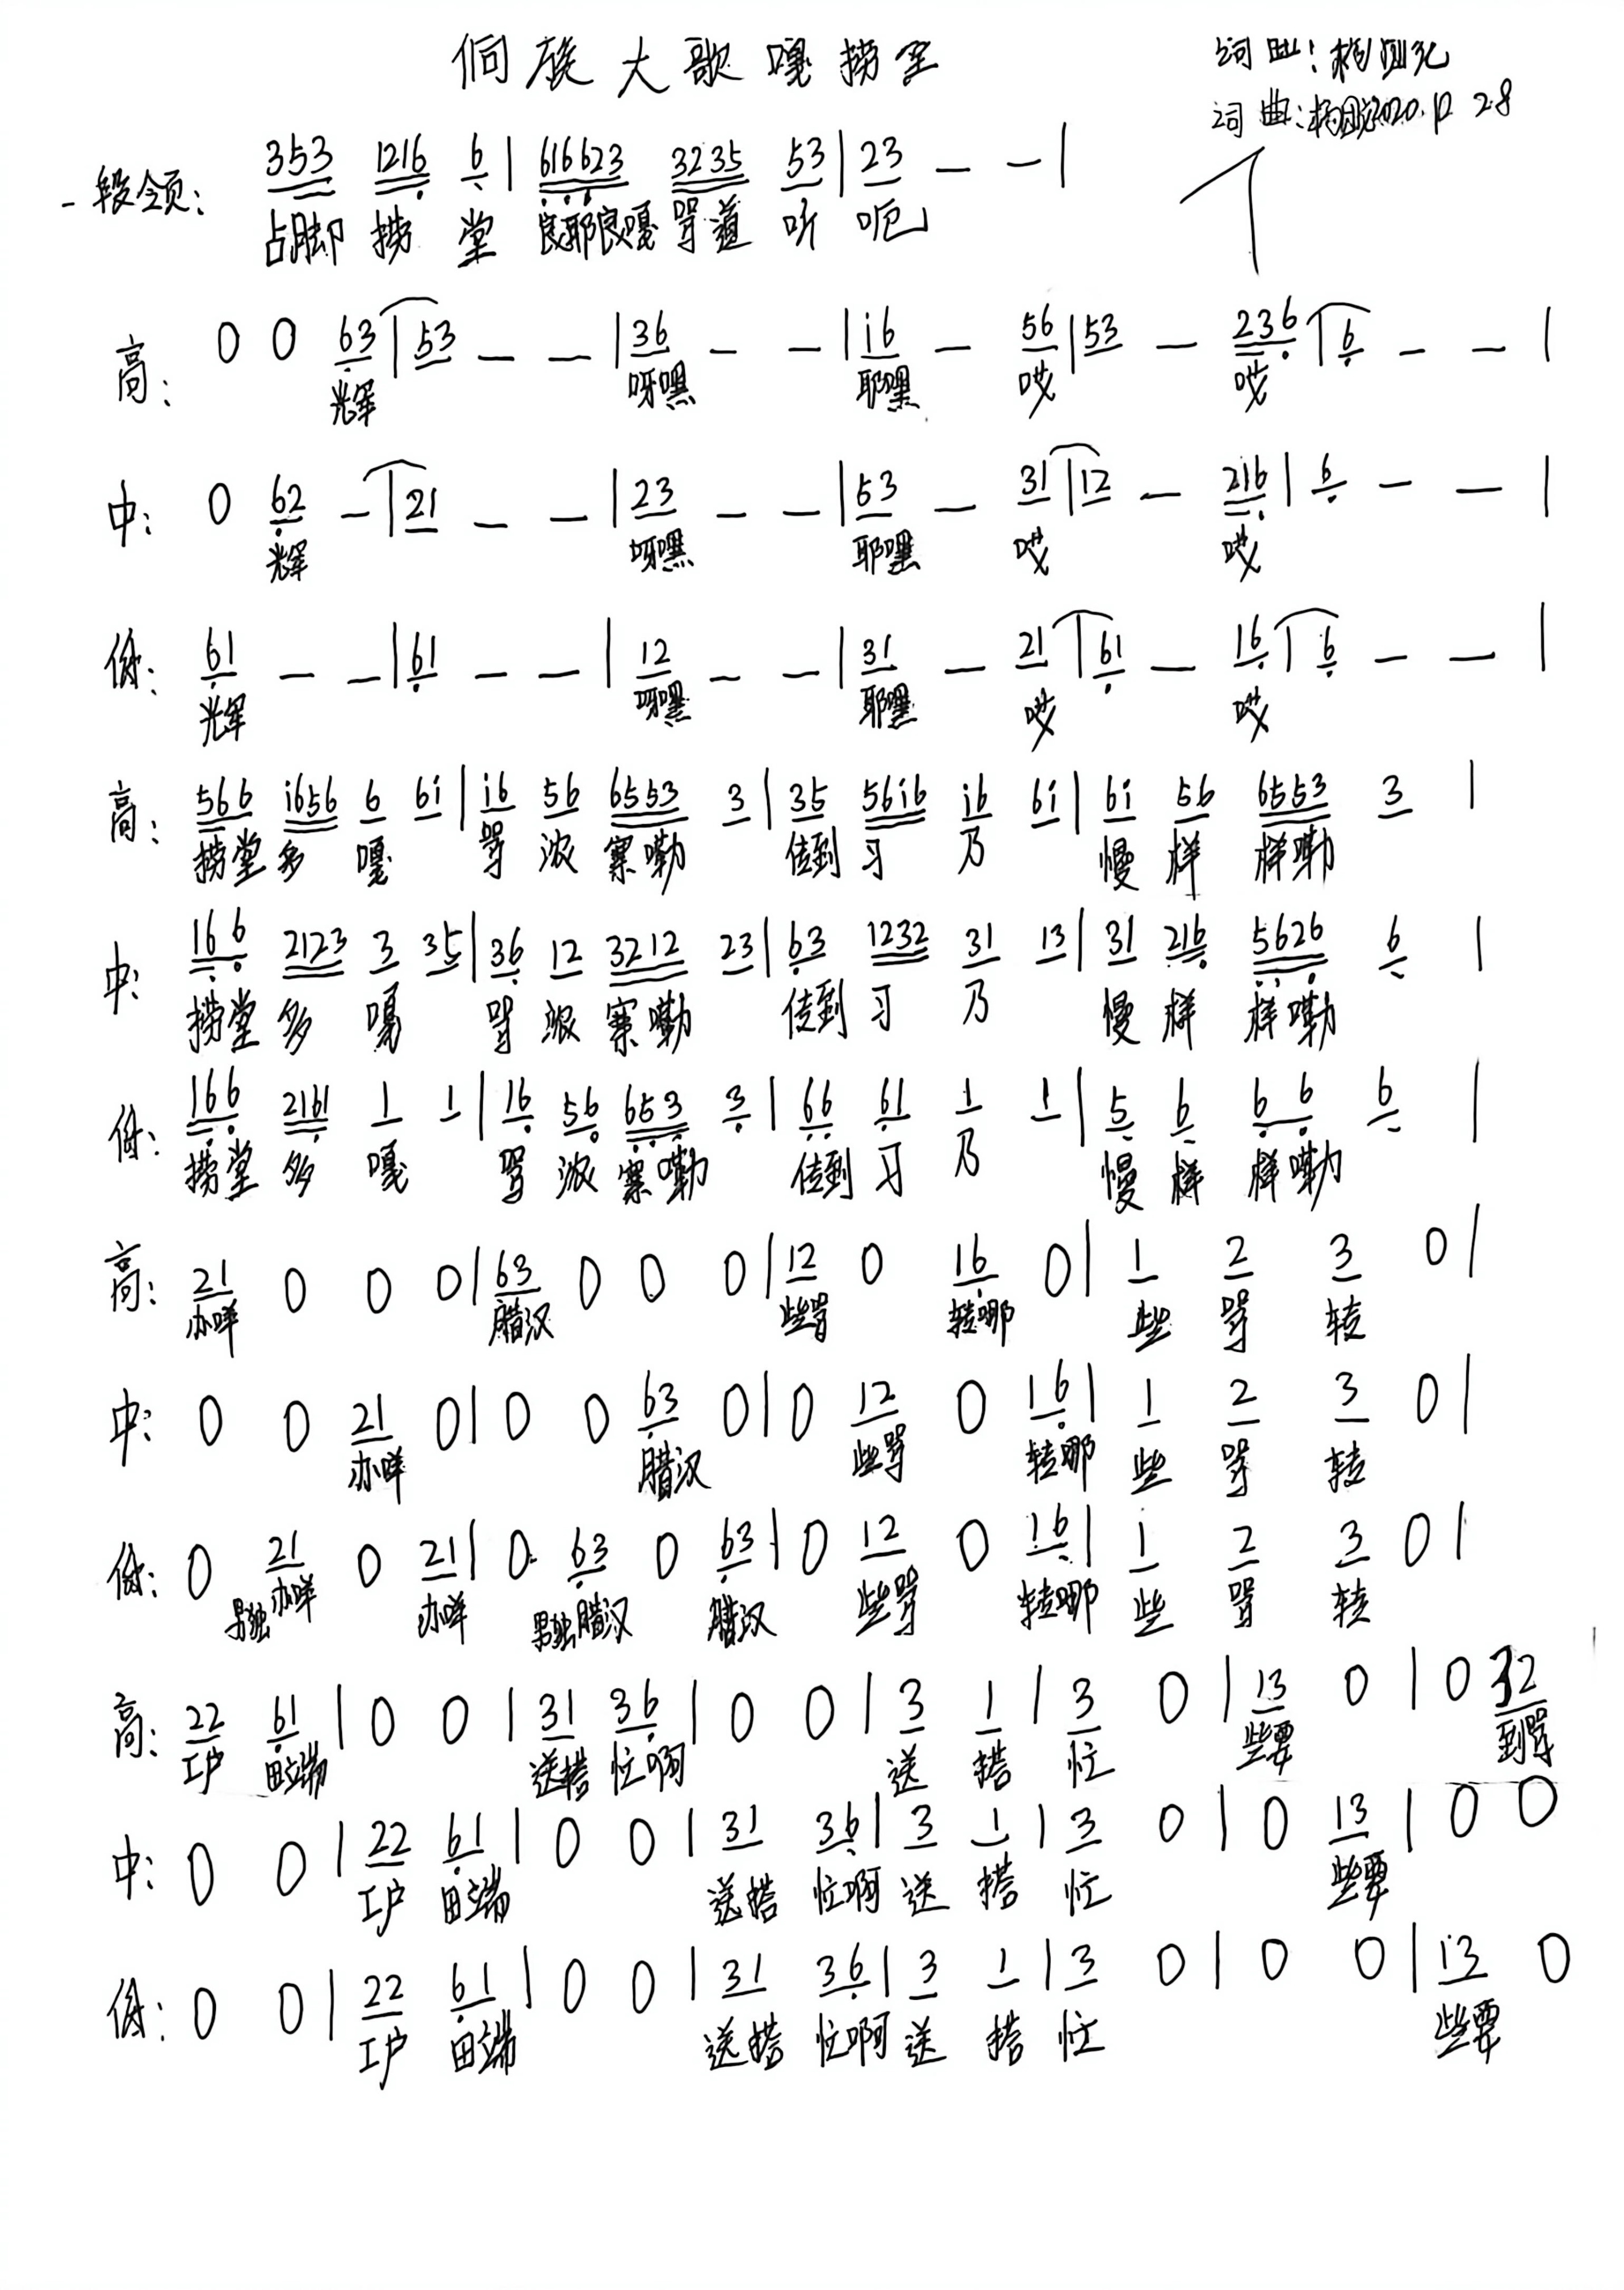 侗族大歌嘎捞堂
词曲:
词曲: 2020.12 28
一段领: 353 1216 6 | 616623 3235 53 | 23 — — |
占脚 捞 堂 良耶良嘎 骂道 听 呃
高: 0 0 63 | 53 — — | 36 — — | i6 — 56 | 53 — 236 | 6 — — |
光军 呀嘿 耶嘿 哎 哎
中: 0 62 — | 21 — — | 23 — — | 53 — 31 | 12 — 216 | 6 — — |
光军 呀嘿 耶嘿 哎 哎
低: 61 — — | 61 — — | 12 — — | 31 — 21 | 61 — 16 | 6 — — |
光军 呀嘿 耶嘿 哎 哎
高: 566 i656 6 6i | i6 56 6553 3 | 35 56i6 i6 6i | 6i 56 6553 3 |
捞堂 多 嘎 骂 浓 寨嘞 传到 习 乃 慢 样 样嘞
中: 166 2123 3 35 | 36 12 3212 23 | 63 1232 31 13 | 31 216 5626 6 |
捞堂 多 嘎 骂 浓 寨嘞 传到 习 乃 慢 样 样嘞
低: 166 2161 1 1 | 16 56 653 3 | 66 61 1 1 | 5 6 6 6 6 |
捞堂 多 嘎 骂 浓 寨嘞 传到 习 乃 慢 样 样嘞
高: 21 0 0 0 | 63 0 0 0 | 12 0 16 0 | 1 2 3 0 |
办咩 腊汉 些骂 转哪 些 骂 转
中: 0 0 21 0 | 0 0 63 0 | 0 12 0 16 | 1 2 3 0 |
办咩 腊汉 些骂 转哪 些 骂 转
低: 0 21 0 21 | 0 63 0 63 | 0 12 0 16 | 1 2 3 0 |
男独办咩 办咩 男独腊汉 腊汉 些骂 转哪 些 骂 转
高: 22 61 | 0 0 | 31 36 | 0 0 | 3 1 | 3 0 | 13 0 | 0 32
工户 田端 送搭 忙啊 送 搭 忙 些要 到骂
中: 0 0 | 22 61 | 0 0 | 31 36 | 3 1 | 3 0 | 0 13 | 0 0
工户 田端 送搭 忙啊 送 搭 忙 些要
低: 0 0 | 22 61 | 0 0 | 31 36 | 3 1 | 3 0 | 0 0 | 13 0
工户 田端 送搭 忙啊 送 搭 忙 些要